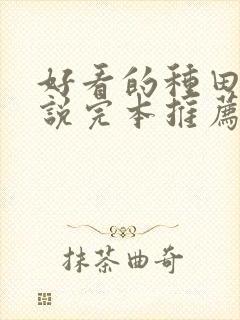 好看的種田
說完本推薦
抹茶曲奇